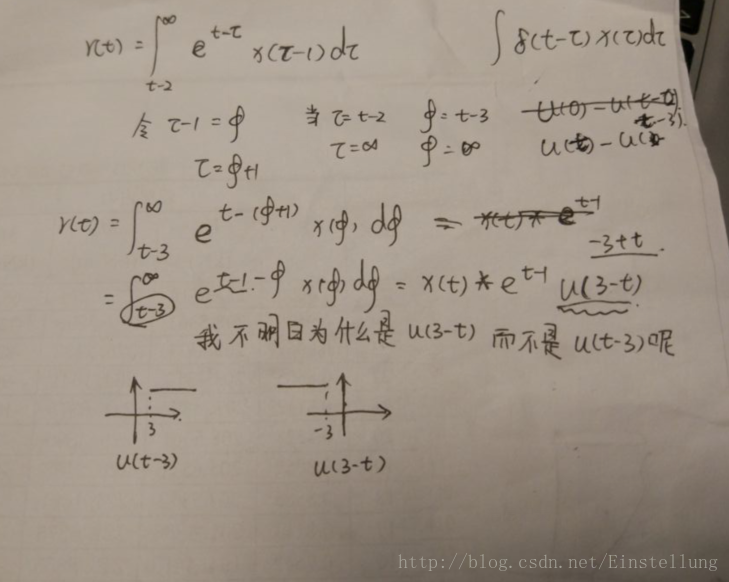 r(t) = ∫_{t-2}^{∞} e^{t-τ} x(τ-1) dτ ∫ δ(t-τ) x(τ) dτ
令 τ-1 = φ 当 τ = t-2 φ = t-3
τ = φ+1 τ = ∞ φ = ∞
r(t) = ∫_{t-3}^{∞} e^{t-(φ+1)} x(φ) dφ = x(t) * e^{t-1}
-3+t
= ∫_{t-3}^{∞} e^{t-1-φ} x(φ) dφ = x(t) * e^{t-1} u(3-t)
我不明白为什么是 u(3-t) 而不是 u(t-3) 呢
3 1 -3
u(t-3) u(3-t)
http://blog.csdn.net/Einstellung